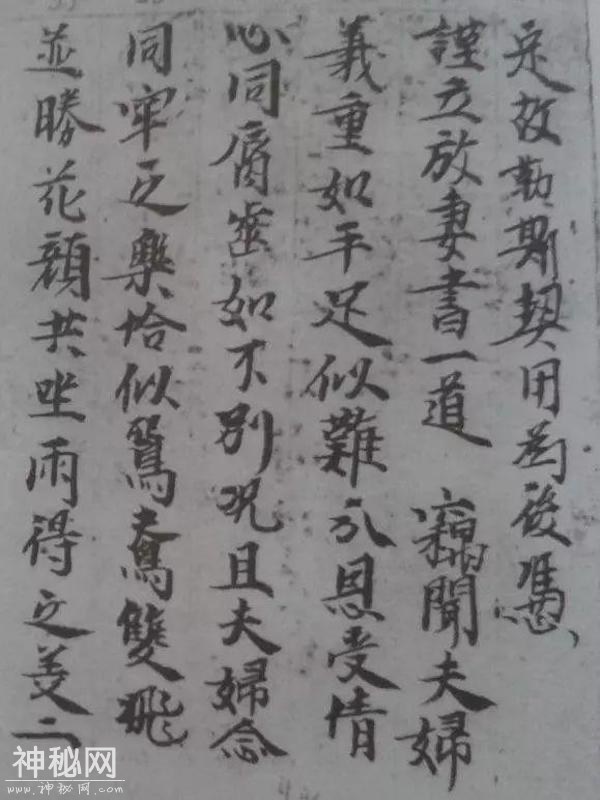 定故勒斯契用為後憑
謹立放妻書一道 竊聞夫婦
義重如手足似難分恩受情
心同脣齒如不別况且夫婦念
同牢之樂恰似鴛鴦雙飛
並勝花顔共坐兩得之美二
神秘网
www.神秘网.com